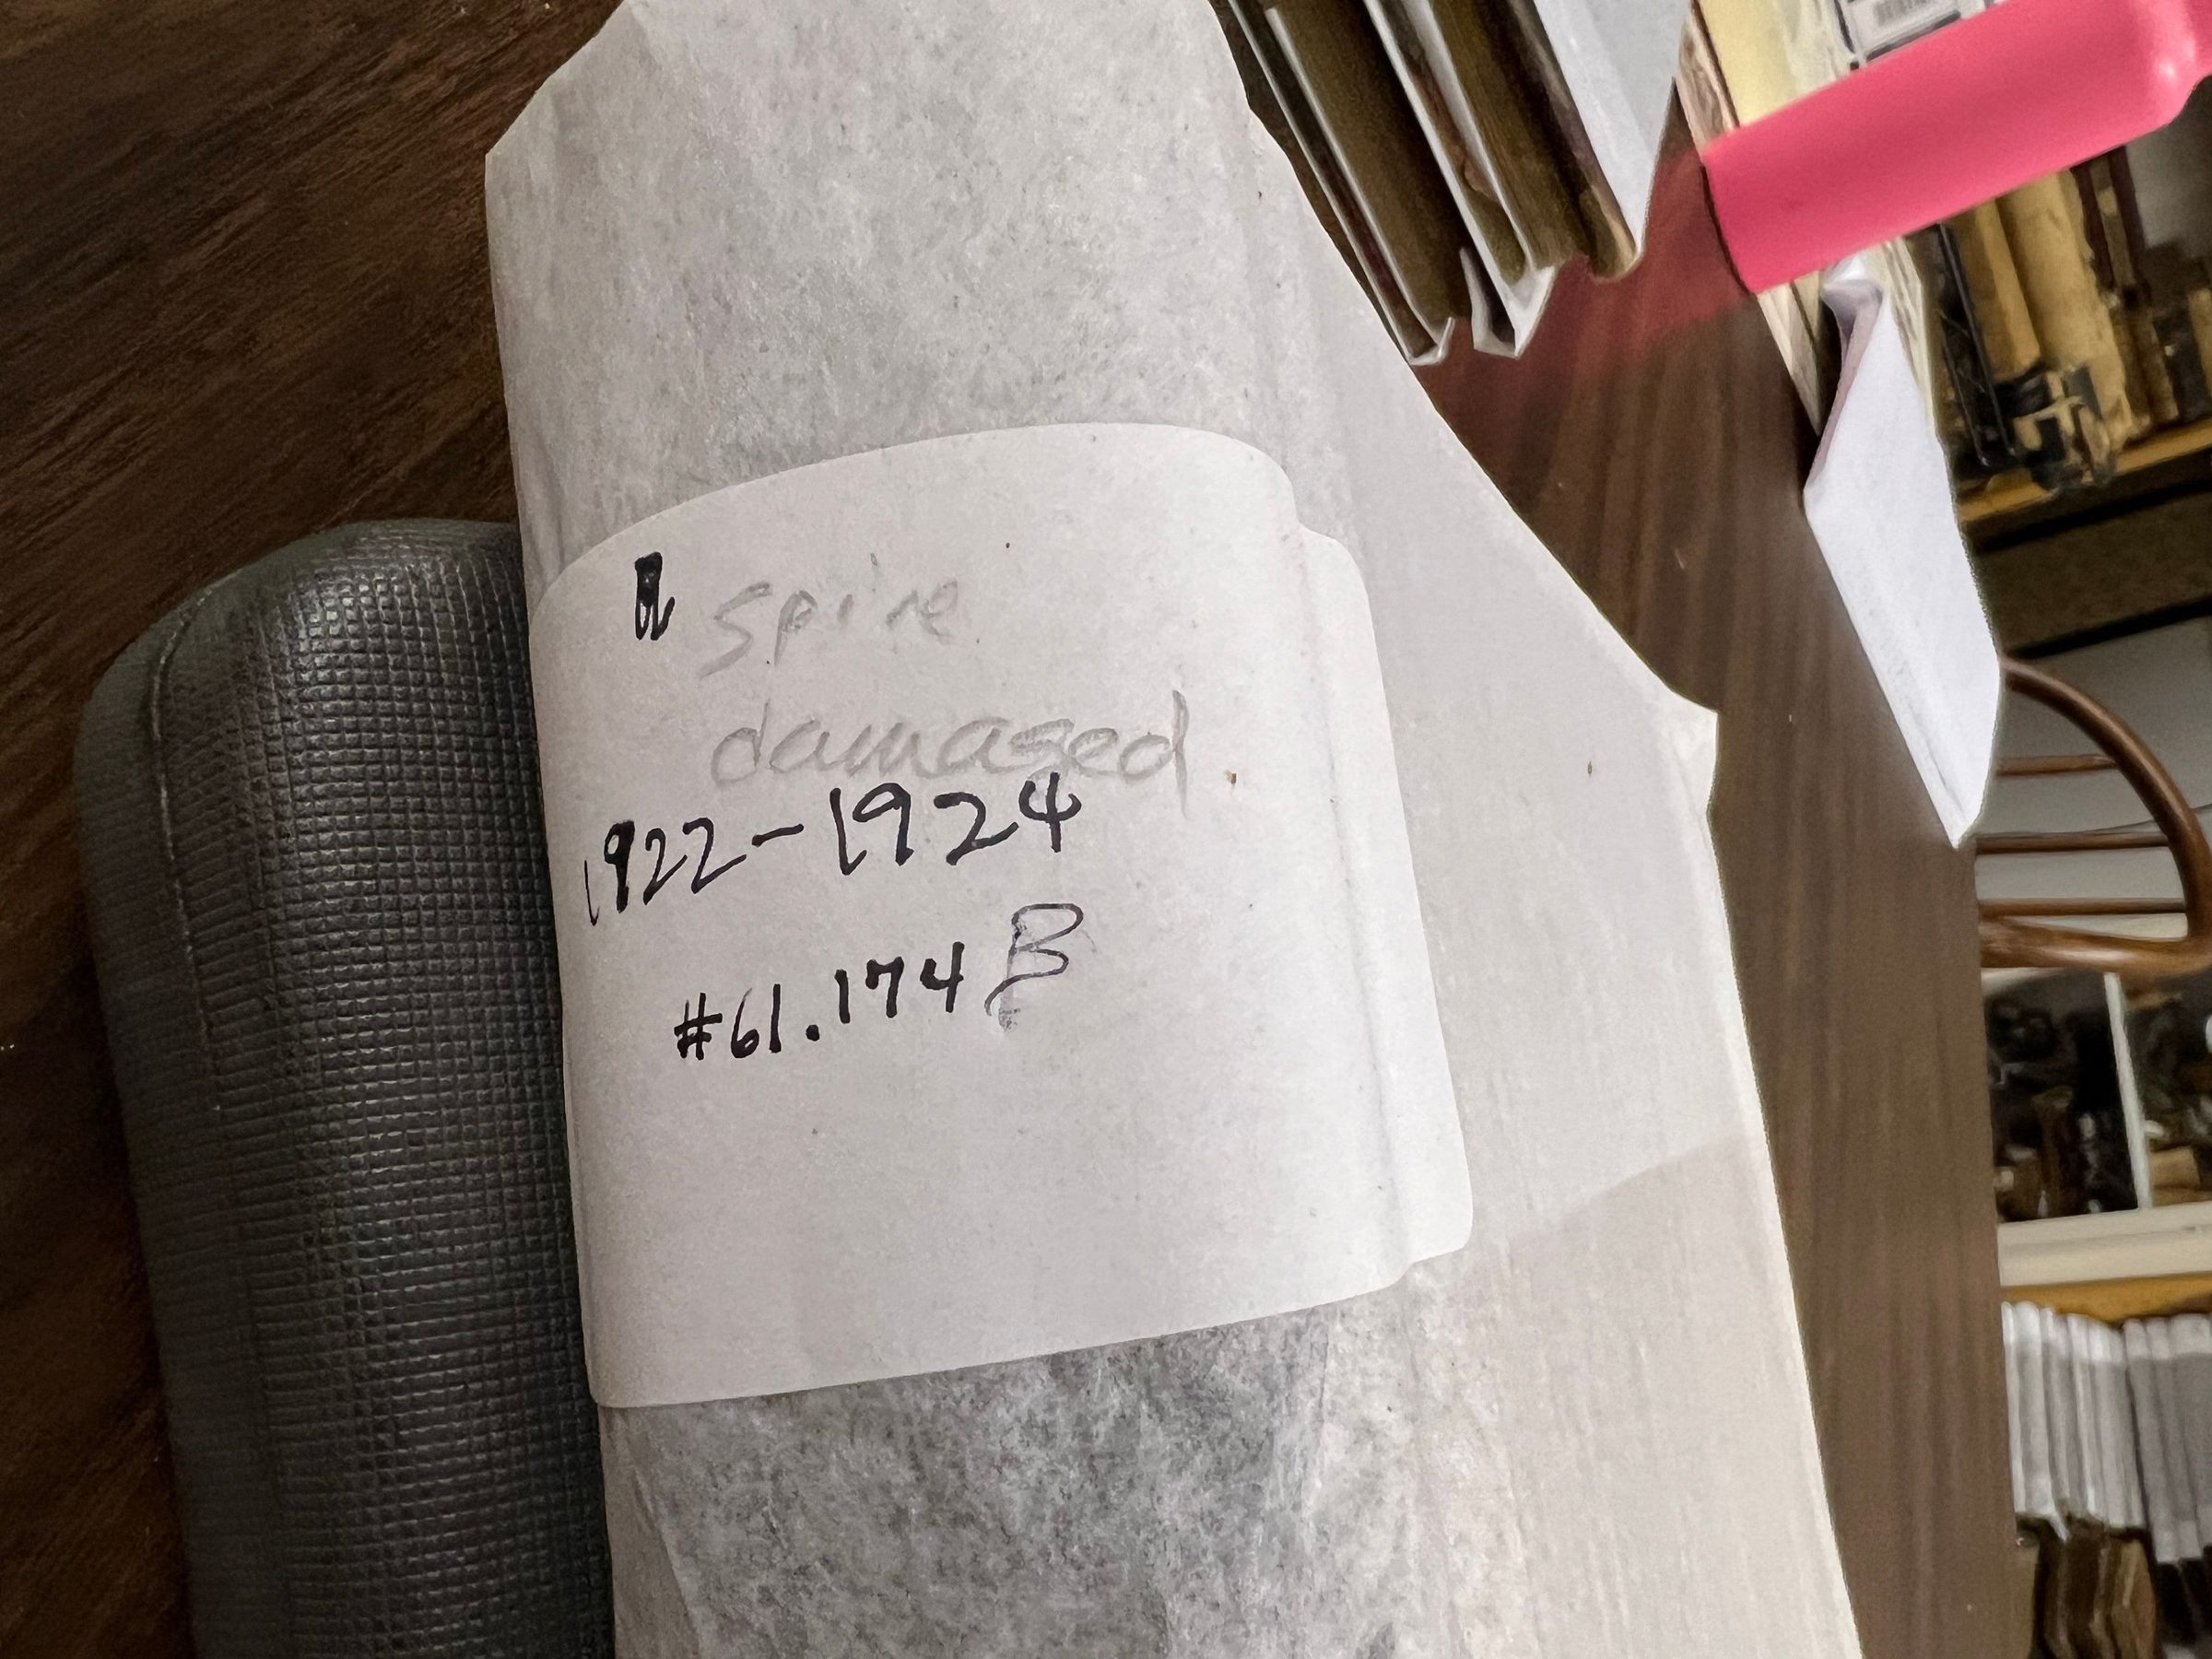 spine
damaged
1922-1924
#61.174 B